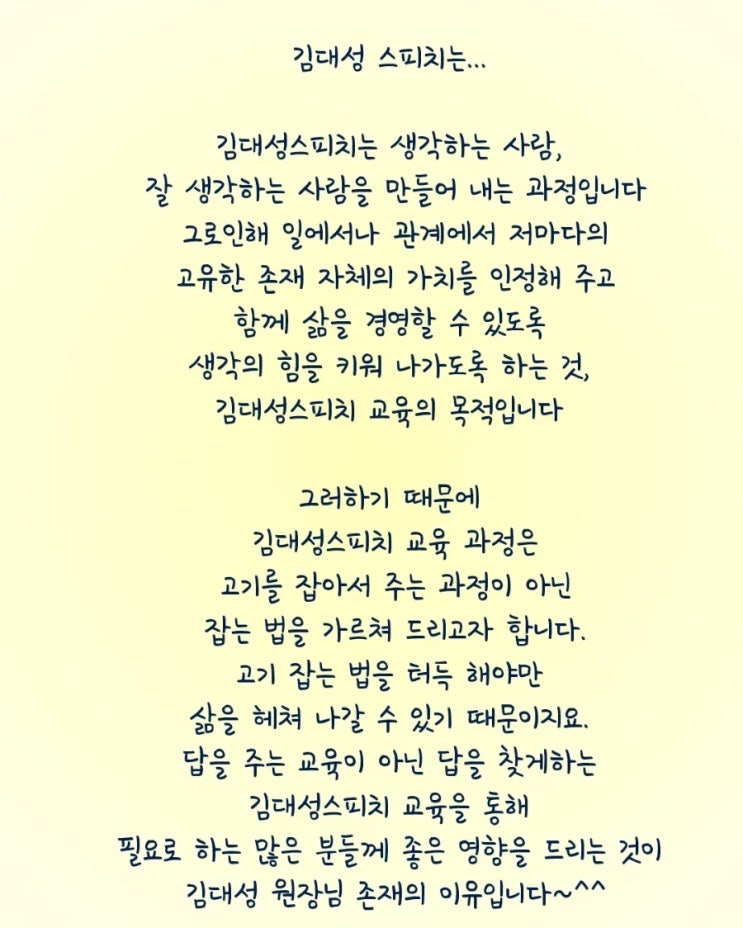 김대성 스피치는...
김대성스피치는 생각하는 사람,
잘 생각하는 사람을 만들어 내는 과정입니다
그로인해 일에서나 관계에서 저마다의
고유한 존재 자체의 가치를 인정해 주고
함께 삶을 경영할 수 있도록
생각의 힘을 키워 나가도록 하는 것,
김대성스피치 교육의 목적입니다
그러하기 때문에
김대성스피치 교육 과정은
고기를 잡아서 주는 과정이 아닌
잡는 법을 가르쳐 드리고자 합니다.
고기 잡는 법을 터득 해야만
삶을 헤쳐 나갈 수 있기 때문이지요.
답을 주는 교육이 아닌 답을 찾게하는
김대성스피치 교육을 통해
필요로 하는 많은 분들께 좋은 영향을 드리는 것이
김대성 원장님 존재의 이유입니다~^^